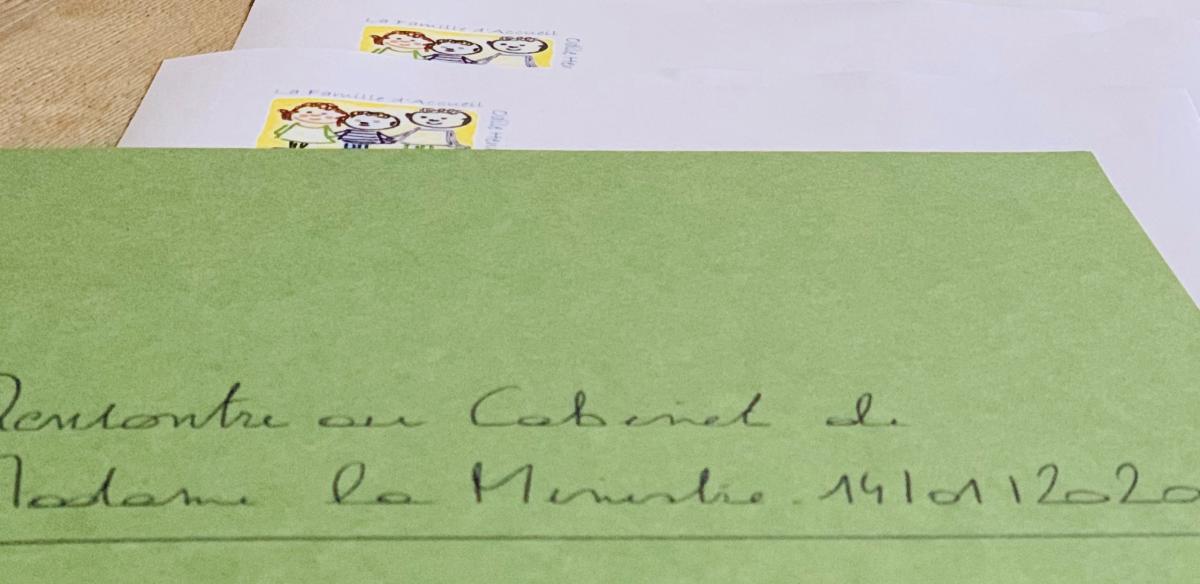 La Famille d'Accueil
La Famille d'Accueil
Rencontre au Cabinet de
Madame la Ministre 14/01/2020